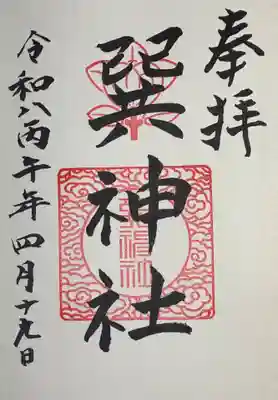 奉拝
巽神社
令和八丙午年四月十九日